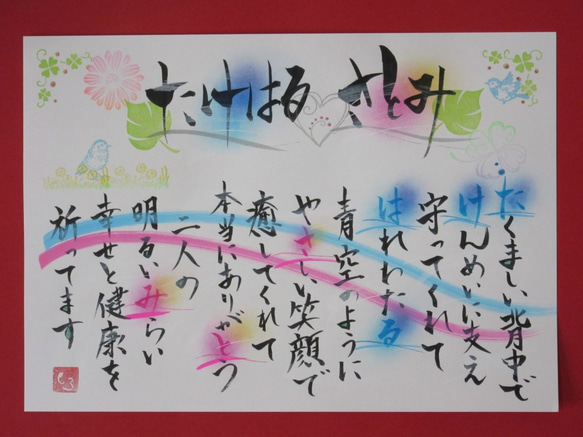 たけはる さとみ
たくましい背中で
けんめいに支え
守ってくれて
はれわたる
青空のように
やさしい笑顔で
癒してくれて
本当にありがとう
二人の
明るいみらい
幸せと健康を
祈ってます